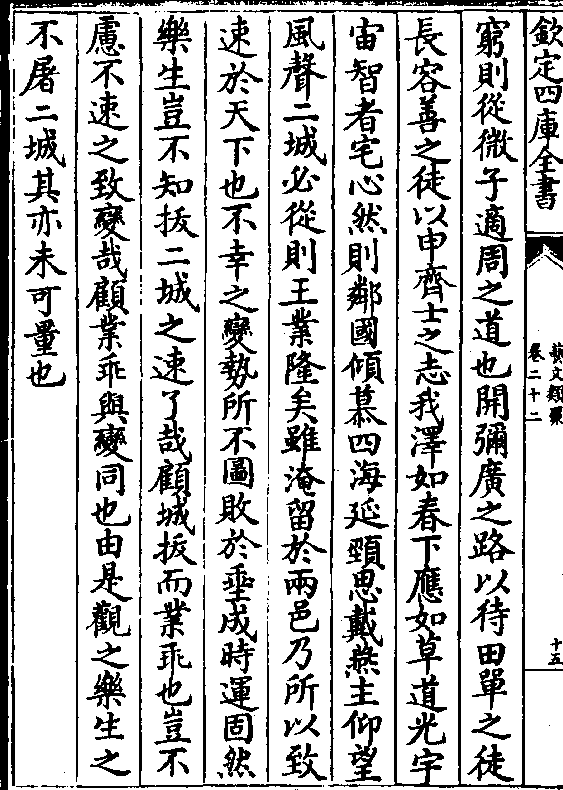 欽定四庫全書
藝文類聚
卷二十二
十五
窮則從微子適周之道也開彌廣之路以待田單之徒
長容善之徒以申齊士之志我澤如春下應如草道光宇
宙智者宅心然則鄰國傾慕四海延頸思戴燕主仰望
風聲二城必從則王業隆矣雖淹留於兩邑乃所以致
速於天下也不幸之變勢所不圖敗於垂成時運固然
樂生豈不知拔二城之速了哉顧城拔而業乖也豈不
慮不速之致變哉顧業乖與變同也由是觀之樂生之
不屠二城其亦未可量也